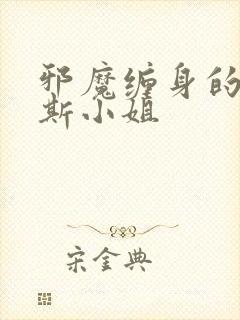 邪魔缠身的
斯小姐
宋金典